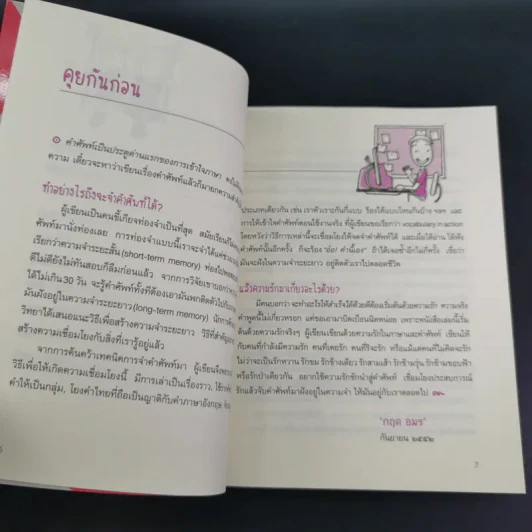 คุยกันก่อน
คำศัพท์เป็นประตูด่านแรกของการเข้าใจภาษา
ความ เดี๋ยวจะหาว่าเขียนเรื่องคำศัพท์แล้วก็มายกความสำคัญ
ทำอย่างไรถึงจะจำคำศัพท์ได้?
ผู้เขียนเป็นคนขี้เกียจท่องจำเป็นที่สุด สมัยเรียนก็ไม่
ศัพท์มานั่งท่องเลย การท่องจำแบบนี้เราจะจำได้แค่ช่วง
เรียกว่าความจำระยะสั้น (short-term memory) ท่องไปพอ
ดีไม่ดียังไม่ทันสอบก็ลืมก่อนแล้ว จากการวิจัยเขาบอกว่า
ได้ไม่เกิน 30 วัน จะรู้คำศัพท์ทั้งทีต้องเอามันพกติดตัวไป
มันฝังอยู่ในความจำระยะยาว (long-term memory) นักการ
วิทยาได้เสนอแนะวิธีเพื่อสร้างความจำระยะยาว วิธีที่สำคัญ
สร้างความเชื่อมโยงกับสิ่งที่เรารู้อยู่แล้ว
จากการค้นคว้าเทคนิคการจำคำศัพท์มา ผู้เขียนจึง
วิธีเพื่อให้เกิดความเชื่อมโยงนี้ มีการเล่าเป็นเรื่องราว, ใช้
คำให้เป็นกลุ่ม, โยงคำไทยที่ถือเป็นญาติกับคำภาษาอังกฤษ
ประเภทเดียวกัน เช่น เราหัวเราะกันกี่แบบ ร้องไห้แบบไหนกันบ้าง ฯลฯ และ
การให้เข้าใจคำศัพท์ตอนใช้งานจริง ที่ผู้เขียนขอเรียกว่า vocabulary in action
โดยหวังว่าวิธีการเหล่านี้จะเชื่อมโยงให้จดจำคำศัพท์ได้ และเมื่อได้อ่าน ได้ฟัง
คำศัพท์นั้นอีกครั้ง ก็จะร้อง 'อ๋อ! คำนี้เอง' ถ้าได้เจอซ้ำอีกไม่กี่ครั้ง เชื่อว่า
มันจะฝังในความจำระยะยาว อยู่ติดตัวเราไปตลอดชีวิต
แล้วความรักมาเกี่ยวอะไรด้วย?
มีคนบอกว่า จะทำอะไรให้สำเร็จได้ด้วยดีต้องเริ่มต้นด้วยความรัก ความหรือ
คำพูดนี้ไม่เกี่ยวหรอก แต่ขอเอามาบิดเบือนนิดหน่อย เพราะหนังสือเล่มนี้เริ่ม
ต้นด้วยความรักจริงๆ ผู้เขียนเขียนด้วยความรักในภาษาและคำศัพท์ เขียนให้
กับคนที่กำลังมีความรัก คนที่เคยรัก คนที่ริจะรัก หรือแม้แต่คนที่ไม่คิดจะรัก
ไม่ว่าจะเป็นรักหวาน รักขม รักข้างเดียว รักสามเส้า รักข้ามรุ่น รักข้ามขอบฟ้า
หรือรักป่าเดียวกัน อยากใช้ความรักชักนำสู่คำศัพท์ เชื่อมโยงประสบการณ์
รักแล้วจับคำศัพท์มาฝังอยู่ในความจำ ให้มันอยู่กับเราตลอดไป
'กฤต อมร'
กันยายน ๒๕๕๒
7